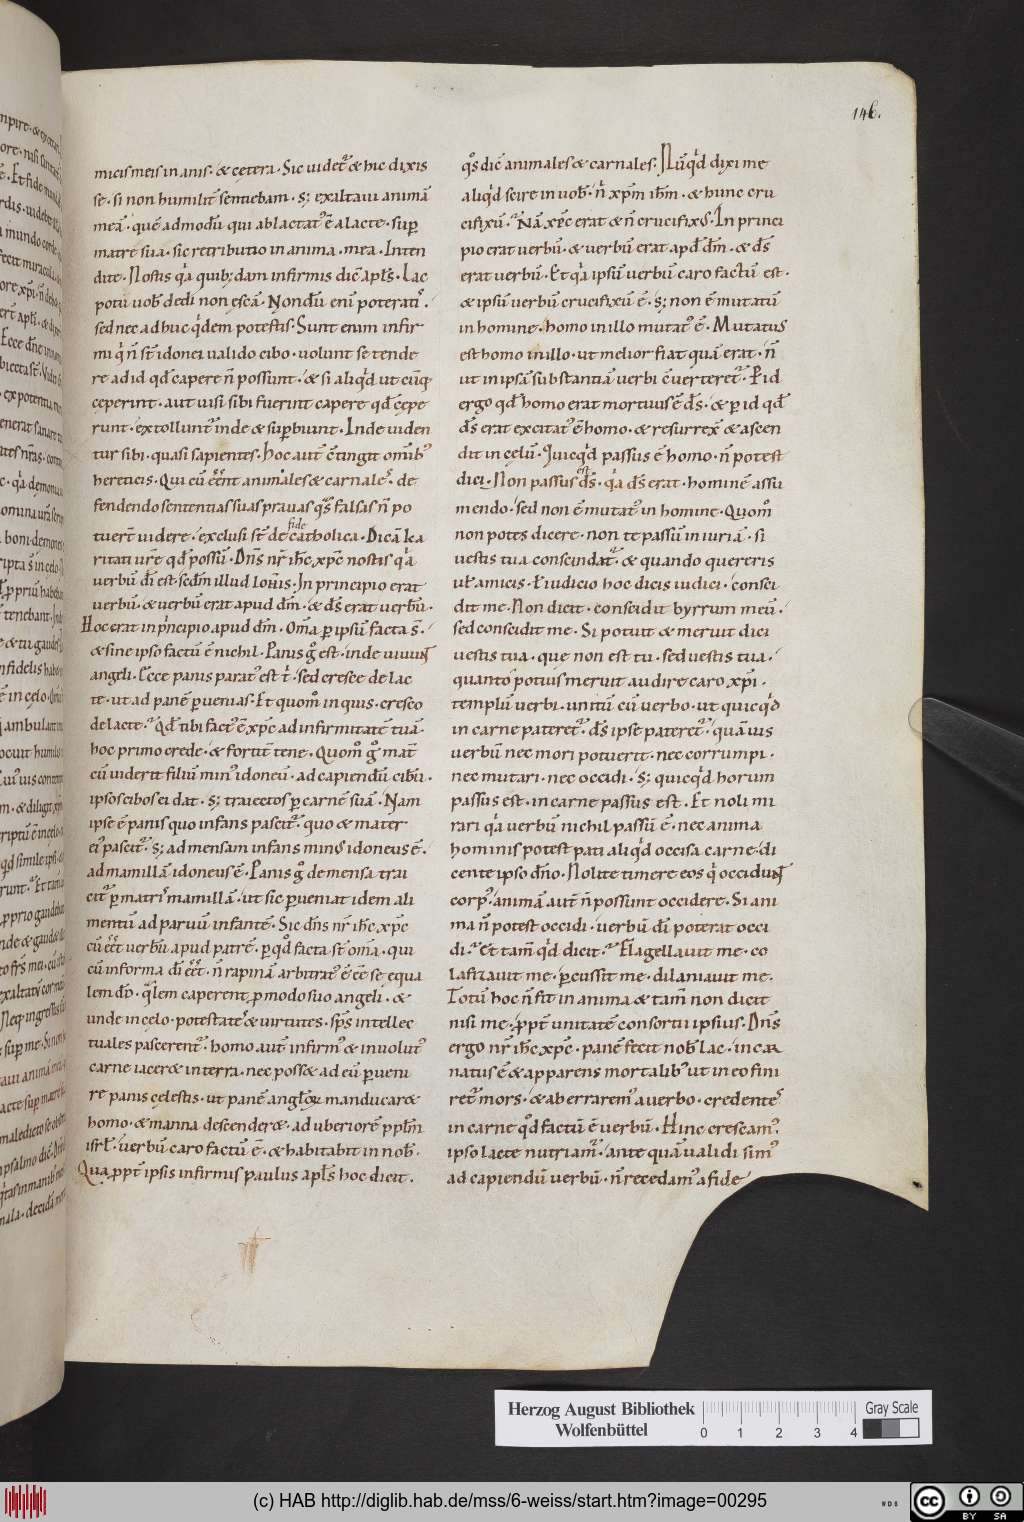 146.
micis meis inanis · & cętera · Sic uidet᷑ & hic dixis
se · si non humilit̄ sentiebam · s; exaltaui animā
meā · quē admodū qui ablactat᾽ ē a lacte · sup̱
matrē suā · sic retributio in anima mea · Inten
dite · Nostis q̓a quib;dam infirmis dic̄ apl̄s · Lac
potū uob̄ dedi non escā · Nondū eni᷑ poterati᾽ ·
sed nec adhuc q̓dem potestis · Sunt enim infir
mi q̓ n̄ st̄ idonei ualido cibo · uolunt se tende
re ad id qd̄ capere n̄ possunt · & si aliq̓d utcūq;
ceperint · aut uisi sibi fuerint capere qd̄ cępe
runt · extollunt᷑ inde & sup̱biunt · Inde uiden
tur sibi quasi sapientes · hoc aut̄ ctingit om̄ib᾽
hereticis · Qui cū eēnt animales & carnale᾽ · de
fendendo sententias suas prauas q̓s falsas n̄ po
tuer̄t uidere · exclusi st̄ de fide catholica · Dicā ka
ritati ur̄e qd̄ possū · Dn̄s nr̄ ih̄c xp̄c nostis q̓a
verbū dī est sc̄dm illud ioh̄is · In principio erat
verbū · & verbū erat apud dm̄ · & ds̄ erat verbū ·
Hoc erat in p̓ncipio apud dm̄ · Om̄a p̱ ipsū facta s̄ ·
& sine ipso factū ē nichil · Panis g̊ est · inde uiuunt
angeli · Ecce panis parat᾽ est t̓ · sed cresce de lac
te · ut ad panē p̱uenias · Et quom̊ inquis · cresco
de lacte · Qd̄ tibi fact᾽ ē xp̄c ad infirmitatē tuā ·
hoc primo crede · & fortit̄ tene · Quom̊ g̊ mat̄
cū uiderit filiū min᾽ idoneū · ad capiendū cibū ·
ipsos cibos ei dat · s; traiectos p̱ carnē suā · Nam
ipse ē panis quo infans pascit᷑ · quo & mater
ei᾽ pascit᷑ · s; ad mensam infans min᾽ idoneus ē ·
ad mamillā idoneus ē · Panis g̊ de mensa trai
cit᷑ p̱ matri᾽ mamillā · ut sic p̱ueniat idem ali
mentū ad paruū infantē · Sic dn̄s nr̄ ih̄c xp̄c
cū eēt verbū apud patrē · p̱ qd̊ facta st̄ om̄a · qui
cū in forma dī eēt · n̄ rapinā arbitrat᾽ ē eē se equa
lem dō · q̓lem caperent p̱ modo suo angeli · &
unde in cęlo · potestate᾽ & uirtutes · sp̄s intellec
tuales pascerent᷑ · homo aut̄ infirm᾽ & inuolut᾽
carne iacer& in terra · nec poss& ad eū p̱ueni
re panis cęlestis · ut panē angl̄oꝝ manducar&
homo · & manna descender& · ad uberiorē ppl̄m
isrl̄ · uerbū caro factū ē · & habitabit in nob̄ ·
Qua p̱pt̄ ipsis infirmis paulus apl̄s hoc dicit ·
q̊s dic̄ animales & carnales · Nūq̓d dixi me
aliq̓d scire in uob̄ · n̓ xp̄m ih̄m · & hunc cru
cifixū · Nā xp̄c erat & n̄ crucifix᾽ · In princi
pio erat verbū · & verbū erat apd̄ dm̄ · & ds̄
erat verbū · Et q̓a ipsū verbū caro factū est ·
& ipsū verbū crucifixū ē · s; non ē mutatū
in homine · homo in illo mutat᾽ ē · Mutatus
est homo in illo · ut melior fiat quā erat · n̄
ut in ipsā substantiā verbi cuerteret᷑ · P̱ id
ergo qd̄ homo erat mortuus ē ds̄ · & p̱ id qd̄
ds̄ erat excitat᾽ ē homo · & resurrex̄ & ascen
dit in cęlū · Quicq̓d passus ē homo · n̄ potest
dici · Non passus est ds̄ · q̓a ds̄ erat · hominē assu
mendo · sed non ē mutat᾽ in homine · Quom̊
non potes dicere · non te passū iniuriā · si
uestis tua conscindat᷑ · & quando quereris
ul̄ amicis · ł iudicio hoc dicis iudici · consci
dit me · Non dicit · conscidit byrrum meū ·
sed conscidit me · Si potuit & meruit dici
vestis tua · que non est tu · sed vestis tua ·
quanto potius meruit audire caro xp̄i ·
templū verbi · unitū cū verbo · ut quicq̓d
in carne pateret᷑ · ds̄ ipse pateret᷑ · quāuis
verbū nec mori potuerit · nec corrumpi ·
nec mutari · nec occidi · s; quicq̓d horum
passus est · in carne passus est · Et noli mi
rari q̓a verbū nichil passū ē · nec anima
hominis potest pati aliq̓d occisa carne · di
cente ipso dn̄o · Nolite timere eos q̓ occidunt
corp᾽ · animā aut̄ n̄ possunt occidere · Si ani
ma n̄ potest occidi · uerbū dī poterat occi
di · Et tam̄ q̓d dicit · Flagellauit me · co
lafizauit me · p̱cussit me · dilaniauit me ·
Totū hoc n̄ fit in anima & tam̄ non dicit
nisi me · p̱pt̄ unitatē consortii ipsius · Dn̄s
ergo nr̄ ih̄c xp̄c · panē fecit nob̄ lac · incar
natus ē & apparens mortalib᾽ ut in eo fini
ret᷑ mors · & ab errarem᾽ a verbo · credente᾽
in carne qd̊ factū ē verbū · Hinc crescam᾽ ·
ipso lacte nutriam᷑ · ante quā ualidi sim᾽
ad capiendū verbū · n̄ recedam᾽ a fide
Herzog August Bibliothek
Wolfenbüttel
0 1 2 3 4
Gray Scale
(c) HAB http://diglib.hab.de/mss/6-weiss/start.htm?image=00295
WDB
cc BY SA